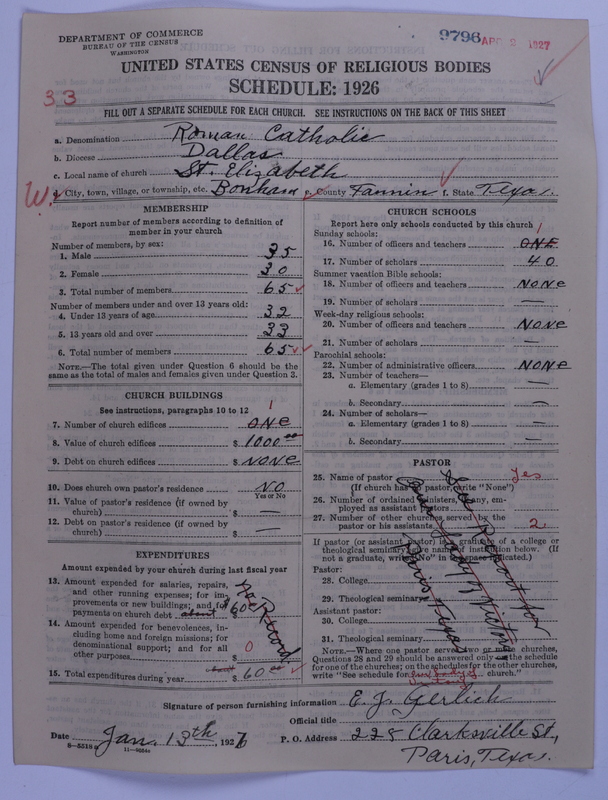 DEPARTMENT OF COMMERCE
BUREAU OF THE CENSUS
WASHINGTON
9796 APR 2 1927
UNITED STATES CENSUS OF RELIGIOUS BODIES
SCHEDULE: 1926
33
FILL OUT A SEPARATE SCHEDULE FOR EACH CHURCH. SEE INSTRUCTIONS ON THE BACK OF THIS SHEET
a. Denomination Roman Catholic
b. Diocese Dallas
c. Local name of church St. Elizabeth
W. d. City, town, village, or township, etc. Bonham e. County Fannin f. State Texas.
MEMBERSHIP
Report number of members according to definition of
member in your church
Number of members, by sex:
1. Male 35
2. Female 30
3. Total number of members 65
Number of members under and over 13 years old:
4. Under 13 years of age 32
5. 13 years old and over 33
6. Total number of members 65
NOTE.—The total given under Question 6 should be the
same as the total of males and females given under Question 3.
CHURCH BUILDINGS
See instructions, paragraphs 10 to 12
1
7. Number of church edifices ONE
8. Value of church edifices $ 1000.00
9. Debt on church edifices $ NONE
10. Does church own pastor's residence NO
Yes or No
11. Value of pastor's residence (if owned by
church) $ —
12. Debt on pastor's residence (if owned by
church) $ —
EXPENDITURES
Amount expended by your church during last fiscal year
13. Amount expended for salaries, repairs,
and other running expenses; for im-
provements or new buildings; and for
payments on church debt about $ 60.00
No Record
14. Amount expended for benevolences, in-
cluding home and foreign missions; for
denominational support; and for all
other purposes $ 0
15. Total expenditures during year $ 60.00
CHURCH SCHOOLS
Report here only schools conducted by this church
Sunday schools:
16. Number of officers and teachers ONE 1
17. Number of scholars 40
Summer vacation Bible schools:
18. Number of officers and teachers NONE
19. Number of scholars —
Week-day religious schools:
20. Number of officers and teachers NONE
21. Number of scholars —
Parochial schools:
22. Number of administrative officers NONE
23. Number of teachers—
a. Elementary (grades 1 to 8) —
b. Secondary —
24. Number of scholars—
a. Elementary (grades 1 to 8) —
b. Secondary —
PASTOR
25. Name of pastor Yes
(If church has no pastor, write "None")
26. Number of ordained ministers, if any, em-
ployed as assistant pastors
27. Number of other churches served by the
pastor or his assistants 2
If pastor (or assistant pastor) is a graduate of a college or
theological seminary, give name of institution below. (If
not a graduate, write "No" in the space indicated.)
Pastor:
28. College
29. Theological seminary
Assistant pastor:
30. College
31. Theological seminary
See Report for
Our Lady of Victory
Paris, Texas
NOTE.—Where one pastor served two or more churches,
Questions 28 and 29 should be answered only on the schedule
for one of the churches; on the schedules for the other churches,
write "See schedule for Our Lady of Victory church."
Signature of person furnishing information E. J. Gerlich
Official title
Date Jan. 13th, 1927 P. O. Address 225 Clarksville St.,
Paris, Texas.